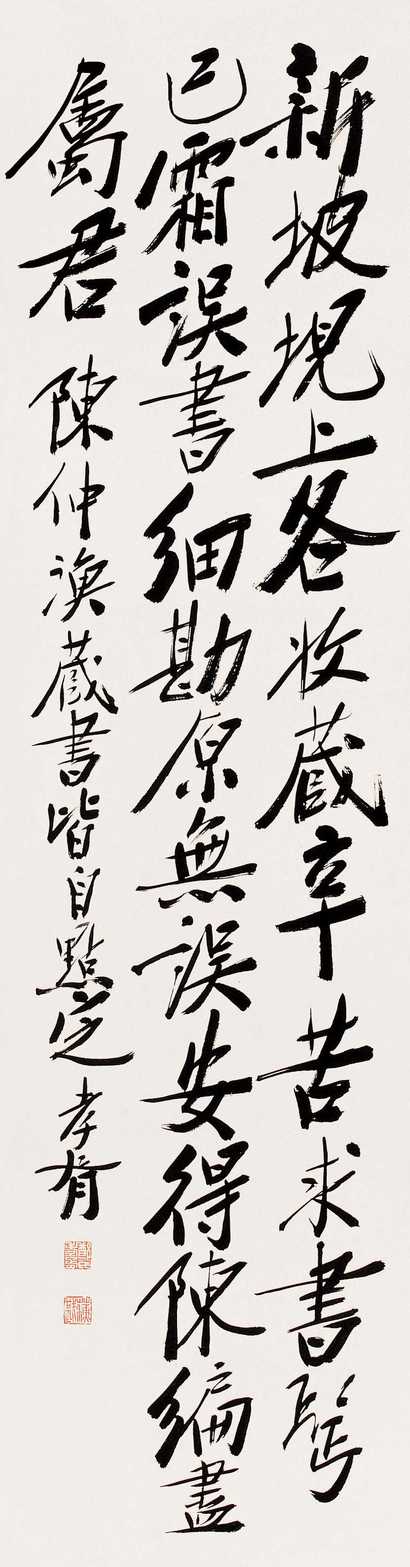 新坡上各收藏辛苦求書髩
已霜誤書細勘原無誤安得陳編盡
屬君 陳仲渙藏書皆自點定 孝胥